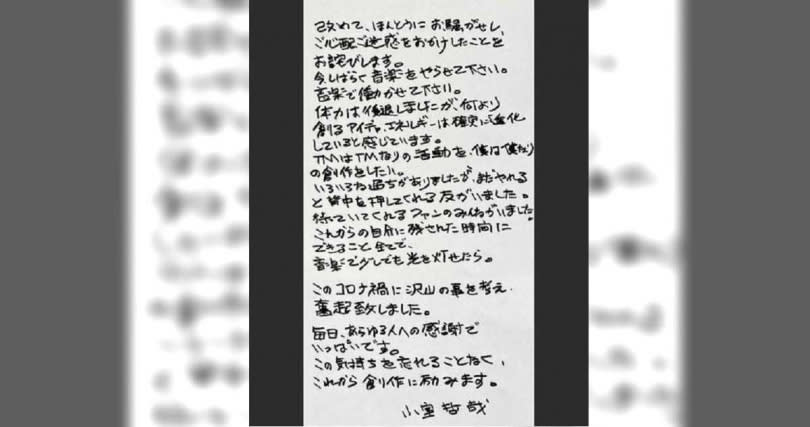 改めて、ほんとうにお騒がせし、
ご心配ご迷惑をおかけしたことを
お詫びします。
今しばらく音楽をやらせて下さい。
音楽で働かせて下さい。
体力は後退しましたが、何より
創るアイデア、エネルギーは確実に進化
していると感じています。
TMはTMなりの活動を、僕は僕なり
の創作をしたい。
いろいろな過ちがありましたが、まだやれる
と背中を押してくれる友がいました。
待っていてくれるファンのみんながいました。
これからの自分に残された時間に
できること全てで、
音楽で少しでも光を灯せたら。
このコロナ禍に沢山の事を考え、
奮起致しました。
毎日、あらゆる人への感謝で
いっぱいです。
この気持ちを忘れることなく、
これから創作に励みます。
小室哲哉